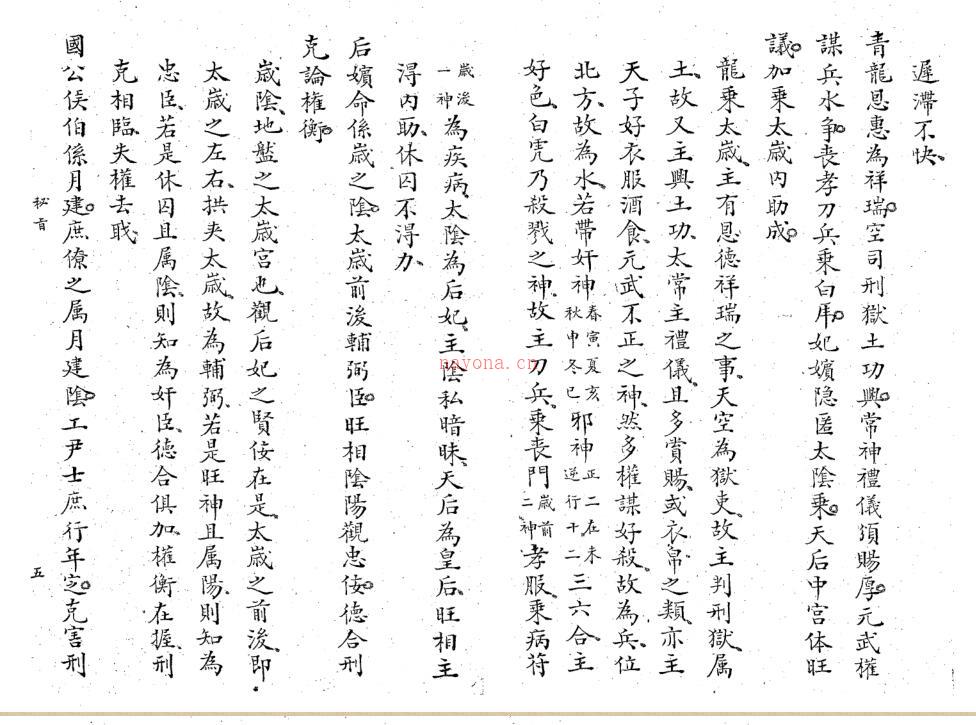 遲滯不快、
青龍恩惠為祥瑞。空司刑獄土功興。常神禮儀頒賜厚。元武權
謀兵水爭。丧孝刀兵乘白虎。妃嬪隐匿太陰乘。天后中宮体旺
議。加乘太歲内助成。
龍乘太歲、主有恩德祥瑞之事、天空為獄吏、故主判刑獄属
土、故又主興土功、太常主禮儀、且多賞賜、或衣帛之類、亦主
天子好衣服酒食、元武不正之神、然多權謀好殺、故為兵、位
北方、故為水、若帶奸神春寅夏亥秋申冬巳邪神正二在未逆行十二三六合、主
好色、白虎乃殺戮之神、故主刀兵、乘丧門歲前二神孝服、乘病符
歲後一神為疾病、太陰為后妃、主陰私暗昧、天后為皇后、旺相主
淂内助、休囚不淂力、
后嬪命係歲之陰。太歲前後輔弼臣。旺相陰陽觀忠佞。德合刑
克論權衡。
歲陰、地盤之太歲宮也、觀后妃之賢佞在是、太歲之前後、即
太歲之左右、拱夹太歲、故為輔弼、若是旺神且属陽、則知為
忠臣、若是休囚且属陰、則知為奸臣、德合俱加、權衡在握、刑
克相臨、失權去職、
國公侯伯係月建。庶僚之属月建陰。工尹士庶行年定。克害刑
秘旨
五
nayona.cn